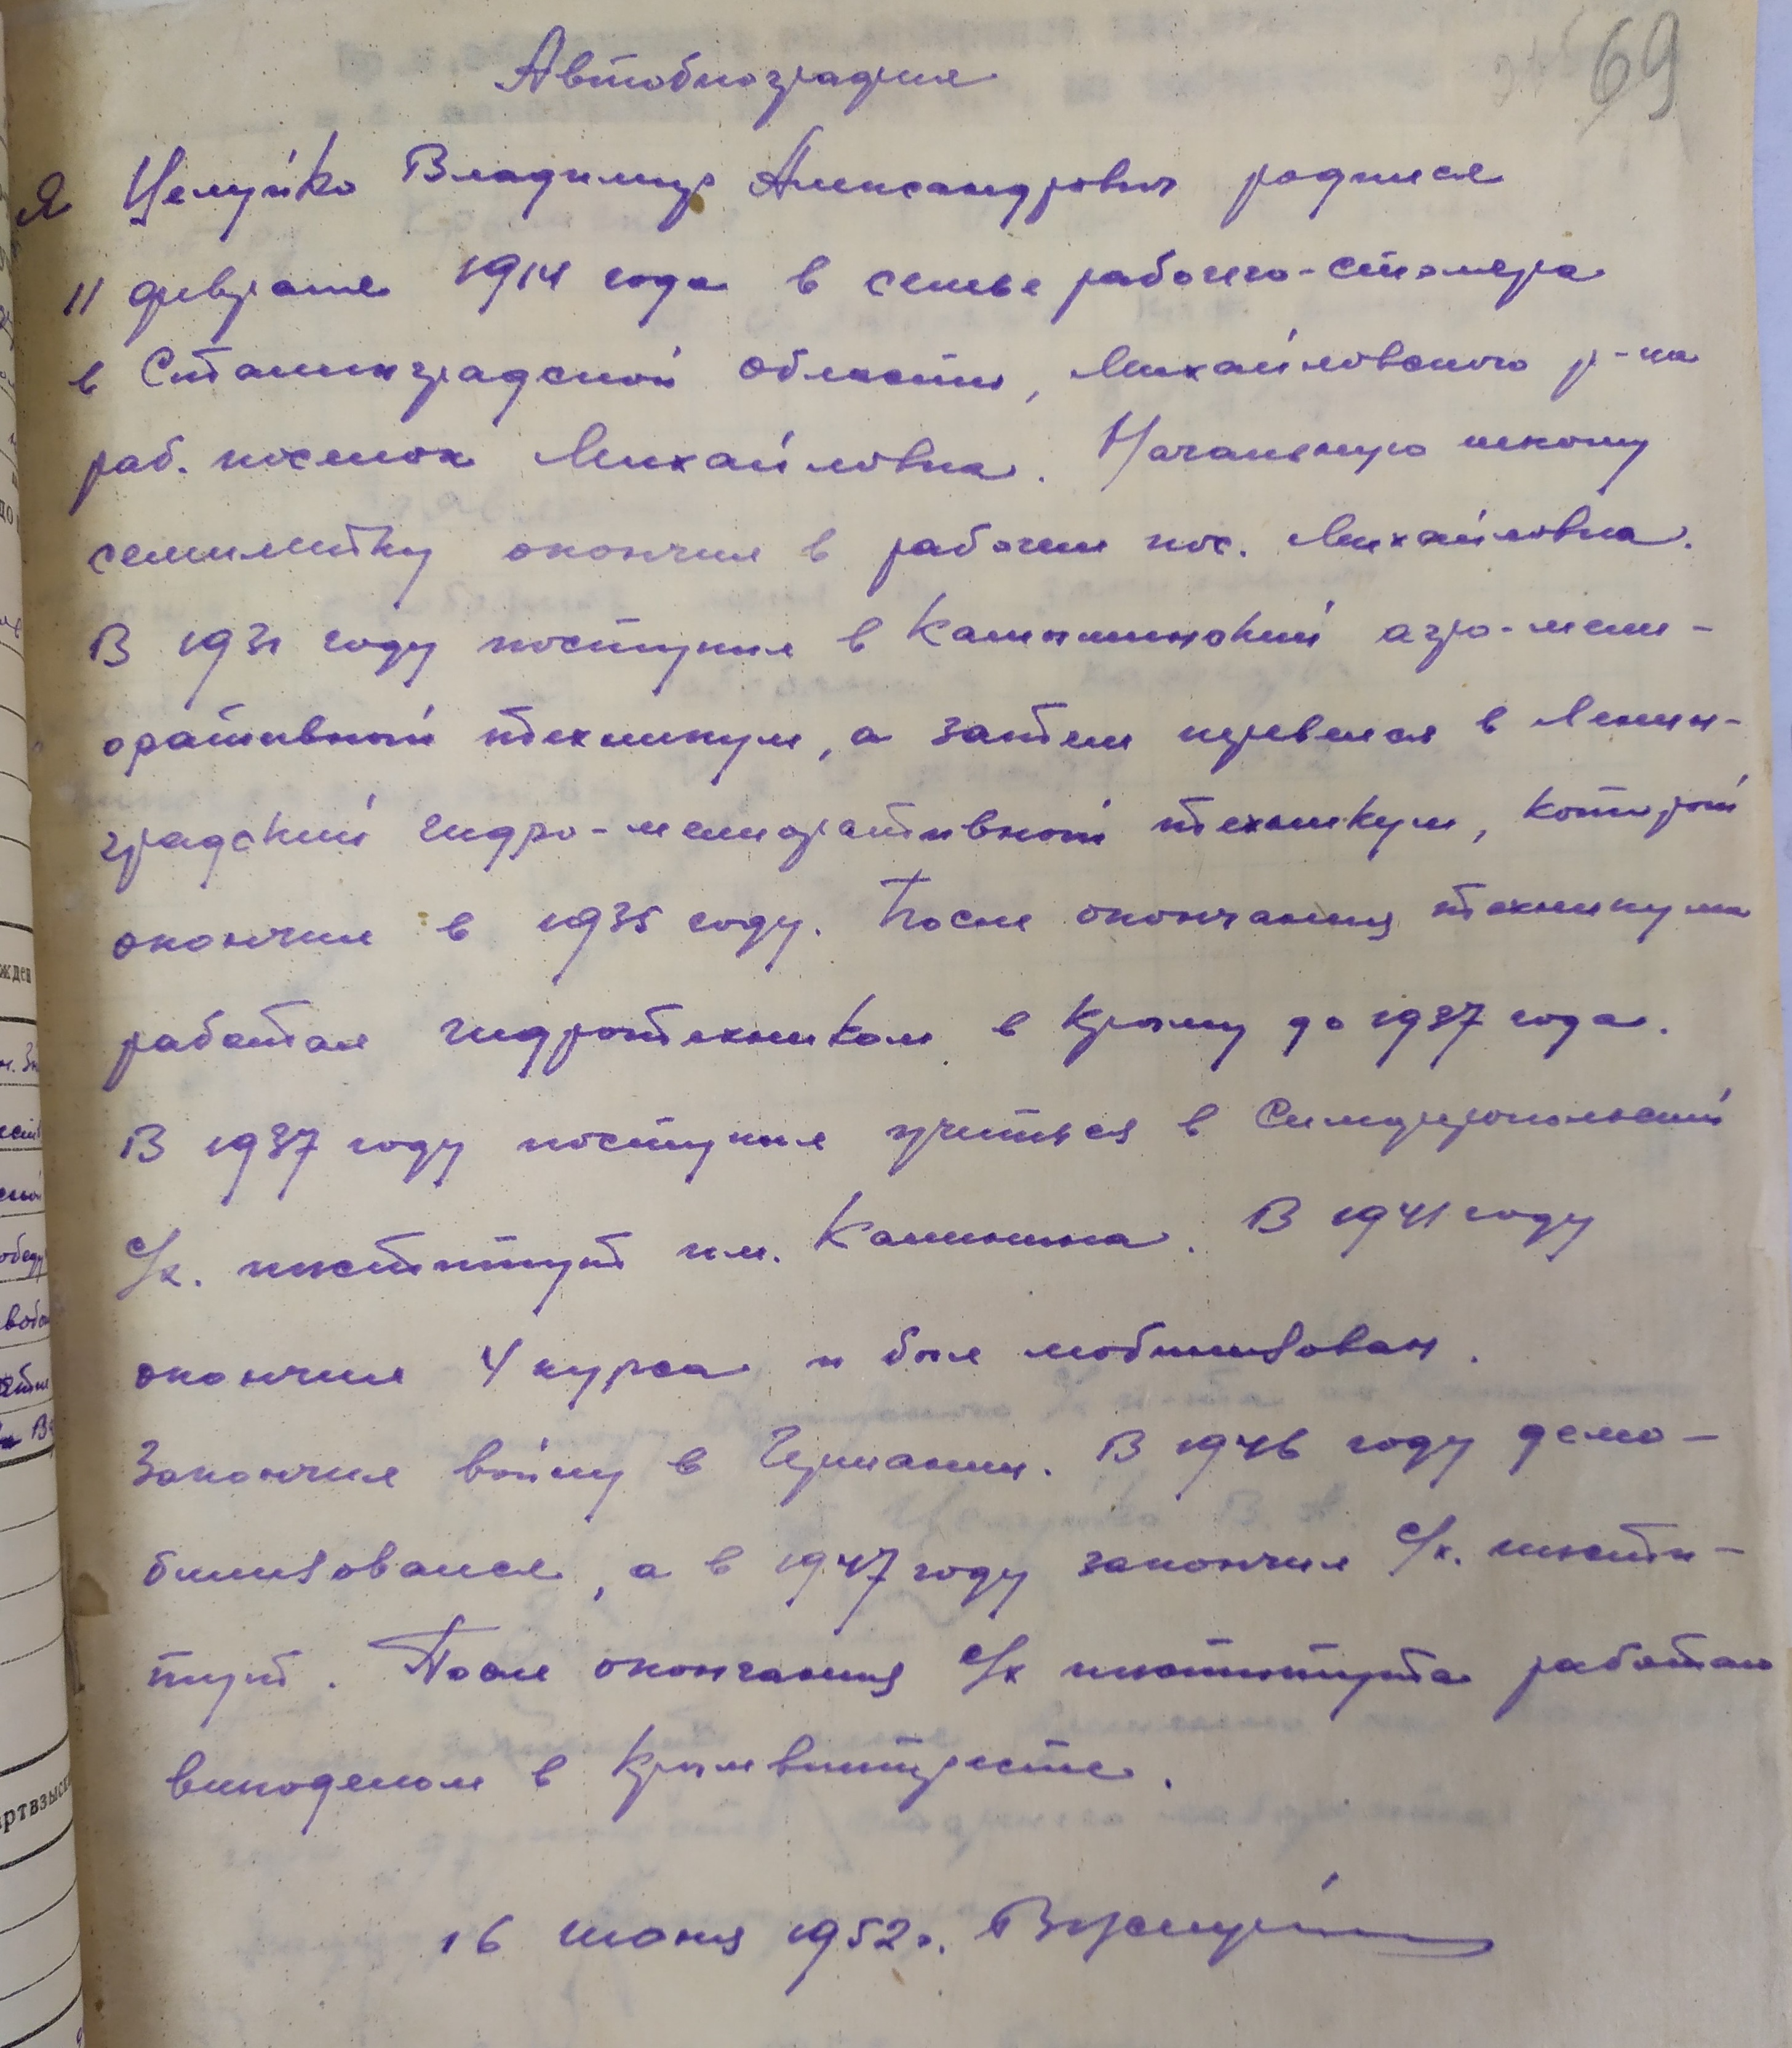 69
Автобиография
Я Целуйко Владимир Александрович родился
11 февраля 1914 года в семье рабочего-столяра
в Сталинградской области, Михайловского р-на
раб. поселок Михайловка. Начальную школу
семилетку окончил в рабочем пос. Михайловка.
В 1931 году поступил в Камышинский агро-мели-
оративный техникум, а затем перевелся в Ленин-
градский гидро-мелиоративный техникум, который
окончил в 1935 году. После окончания техникума
работал гидротехником в Крыму до 1937 года.
В 1937 году поступил учиться в Симферопольский
с/х. институт им. Калинина. В 1941 году
окончил 4 курса и был мобилизован.
Закончил войну в Германии. В 1946 году демо-
билизовался, а в 1947 году закончил с/х. инсти-
тут. После окончания с/х института работаю
виноделом в Крымвинтресте.
16 июня 1952 г. ВЦелуй